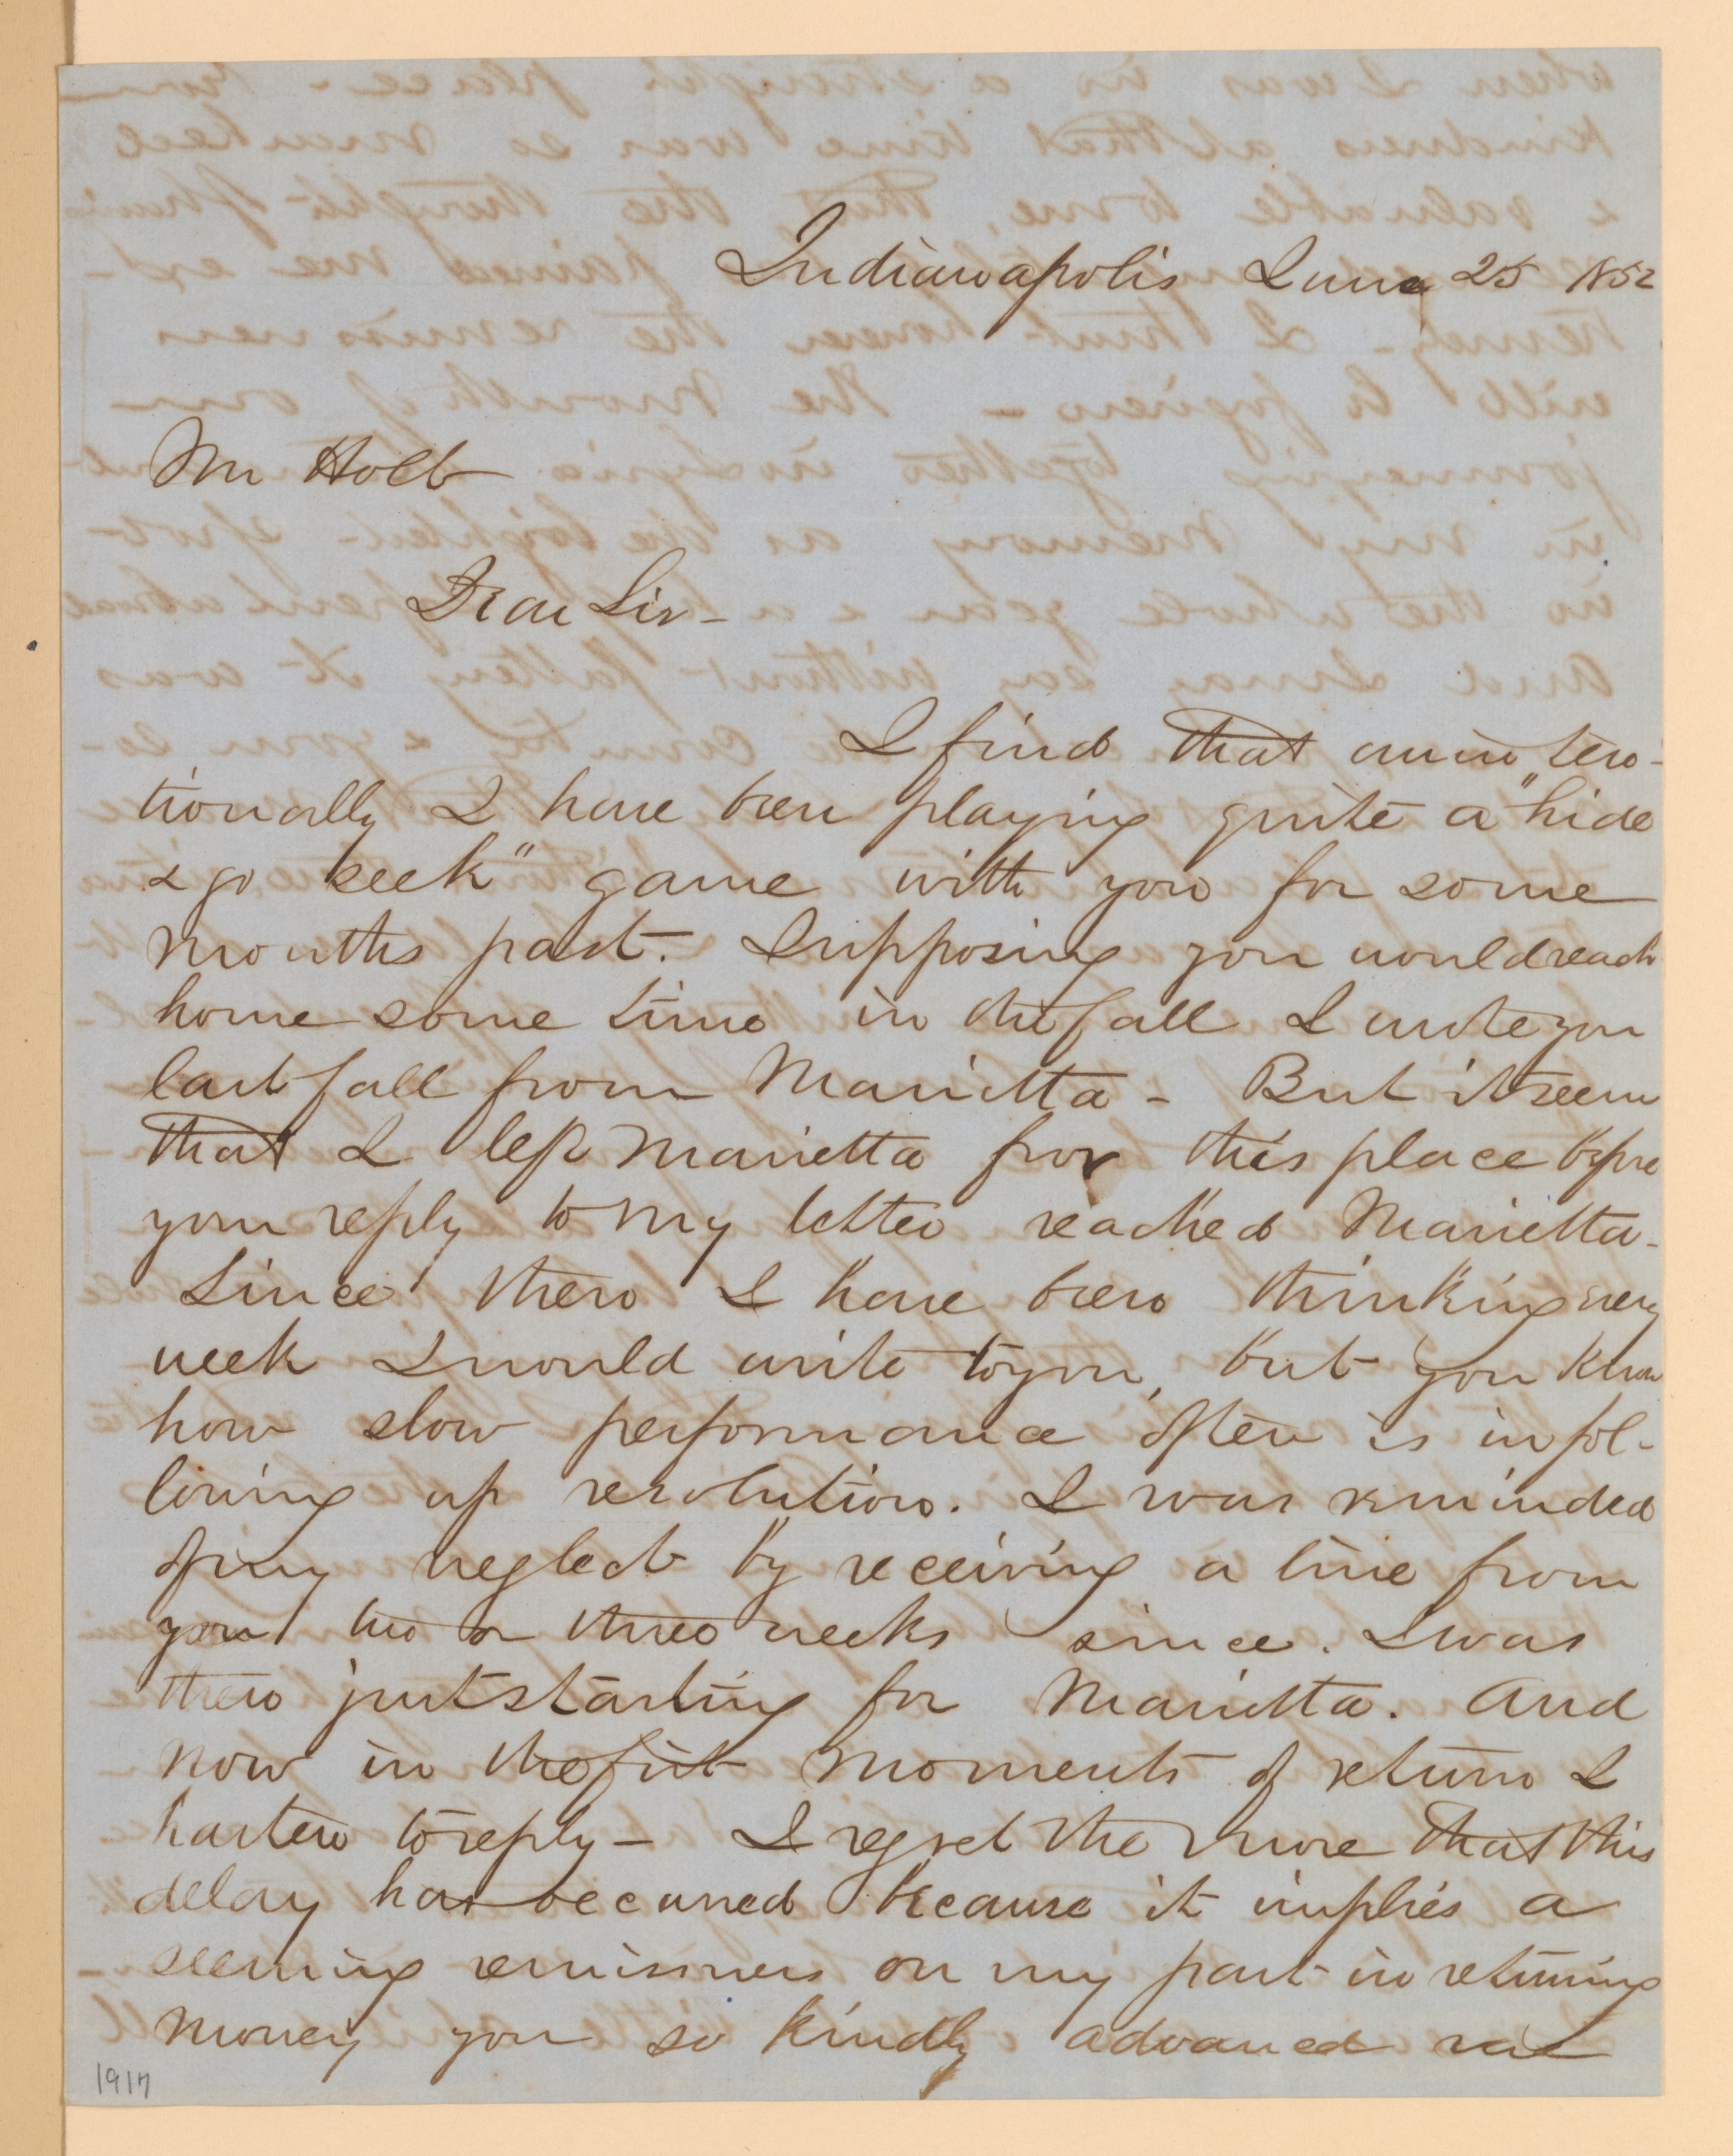 Indianapolis June 25 1852
Mr Holt
Dear Sir -
I find that uninten-
tionally I have been playing quite a "hide
& go seek" game with you for some
months past. Supposing you would reach
home some time in the fall I wrote you
last fall from Marietta - But it seems
that I left Marietta for this place before
your reply to my letter reached Marietta -
Since then I have been thinking every
week I would write to you, but you know
how slow performance often is in fol-
lowing up resolution. I was reminded
of my neglect by receiving a line from
you two or three weeks since. I was
then just starting for Marietta. And
now in the first moments of return I
hasten to reply - I regret the more that this
delay has occurred because it implies a
seeming remissness on my part in returning
money you so kindly advanced me
1917